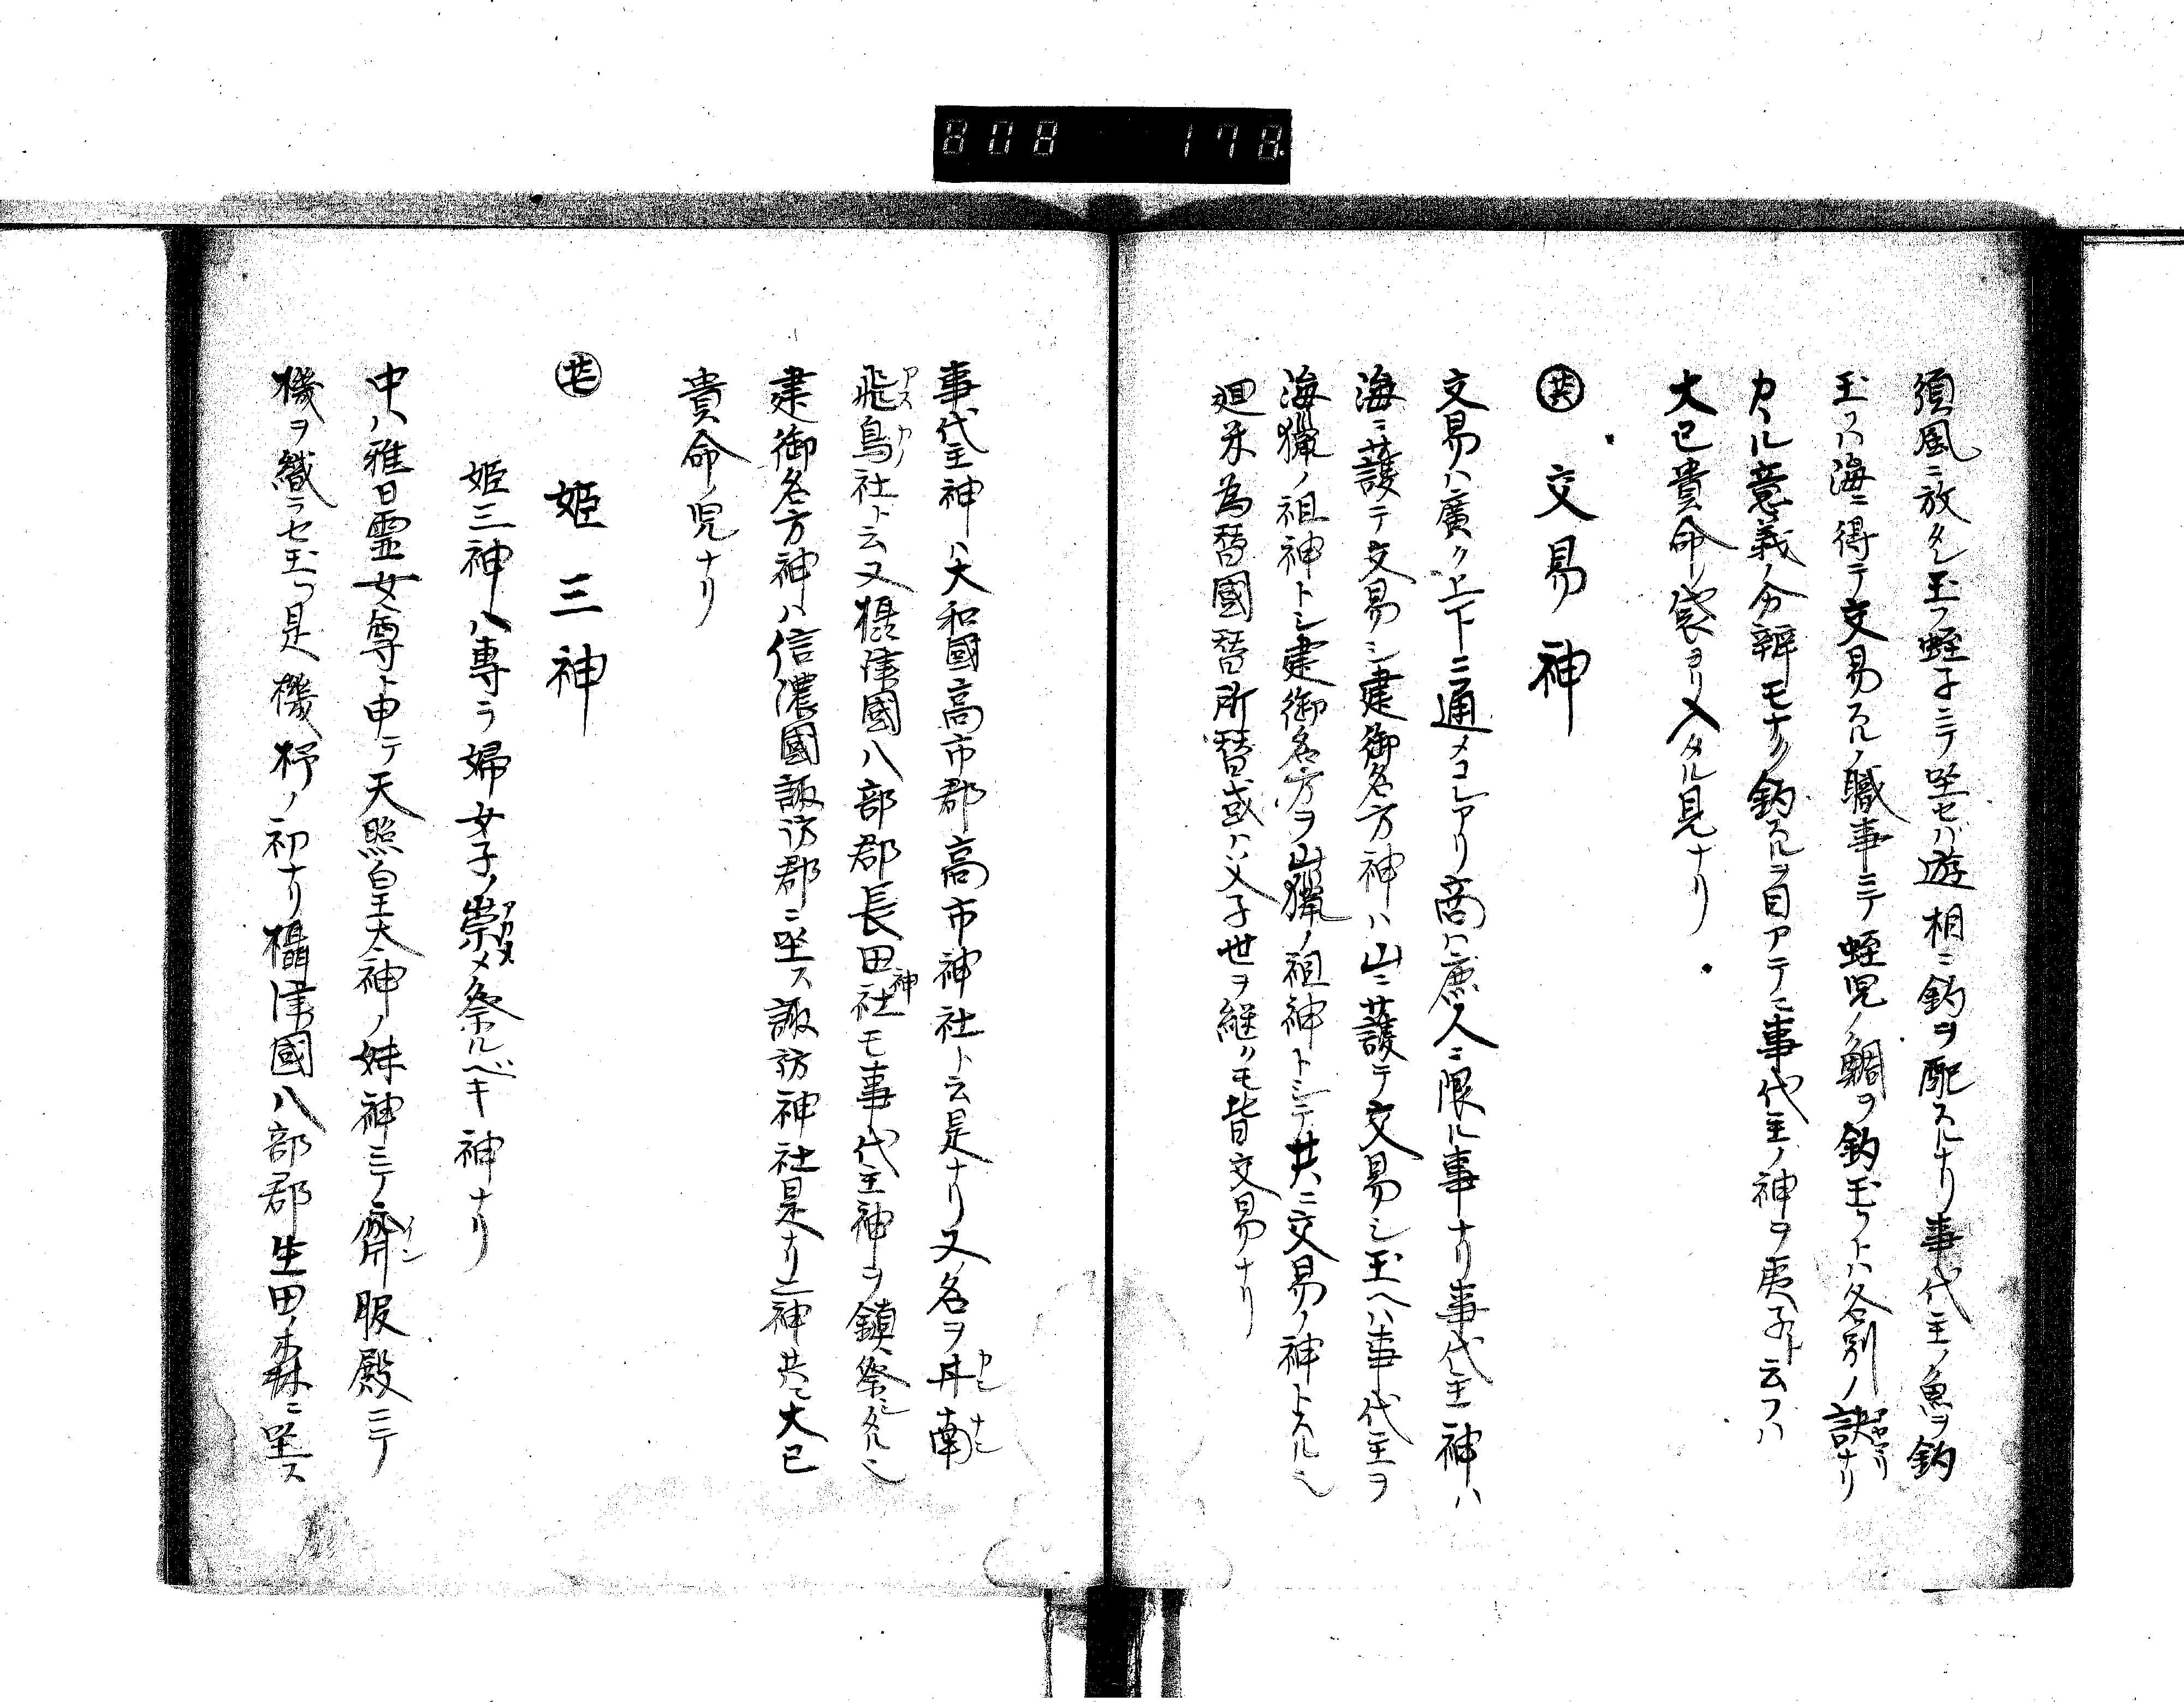 808 178
須風ニ放タレ玉フ蛭子ニテ坐セバ遊相ニ釣ヲ配スルナリ事代主ノ魚ヲ釣
玉フハ海ニ得テ交易スルノ職事ニテ蛭児ノ鯛ヲ釣玉フトハ各別ノ訣ナリ
カヽル意義ノ分辨モナク釣スルヲ目アテニ事代主ノ神ヲ夷子ト云フハ
大已貴命ノ袋ヨリ入タル見ナリ
㊱ 交易神
交易ハ廣ク上下ニ通メコレアリ商ハ鹿人ニ限ル事ナリ事代主神ハ
海ニ護テ交易シ建御名方神ハ山ニ護テ交易シ玉ヘハ事代主ヲ
海獵ノ祖神トシ建御名方ヲ山獵ノ祖神トシテ共ニ交易ノ神トスル也
廻米為替國替所替或ハ父子世ヲ継クモ皆交易ナリ
事代主神ハ大和國高市郡高市神社ト云是ナリ又名ヲ甘南
飛鳥社ト云又攝津國八部郡長田神社モ事代主神ヲ鎮祭タル也
建御名方神ハ信濃國諏訪郡ニ坐ス諏訪神社是ナリ二神共ニ大已
貴命ノ児ナリ
姫三神
姫三神ハ專ラ婦女子ノ崇メ祭ルベキ神ナリ
中ハ雅日霊女尊ト申テ天照皇太神ノ妹神ニテ齋服殿ニテ
機ヲ織ラセ玉フ是機杼ノ初ナリ攝津國八部郡生田ノ森ニ坐ス